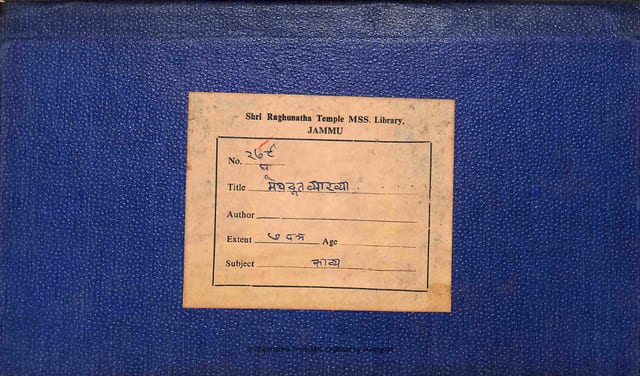 Shri Raghunatha Temple MSS. Library,
JAMMU
No. २७९
घ
Title मेघदूतव्याख्या
Author
Extent ७ पत्र Age
Subject काव्य